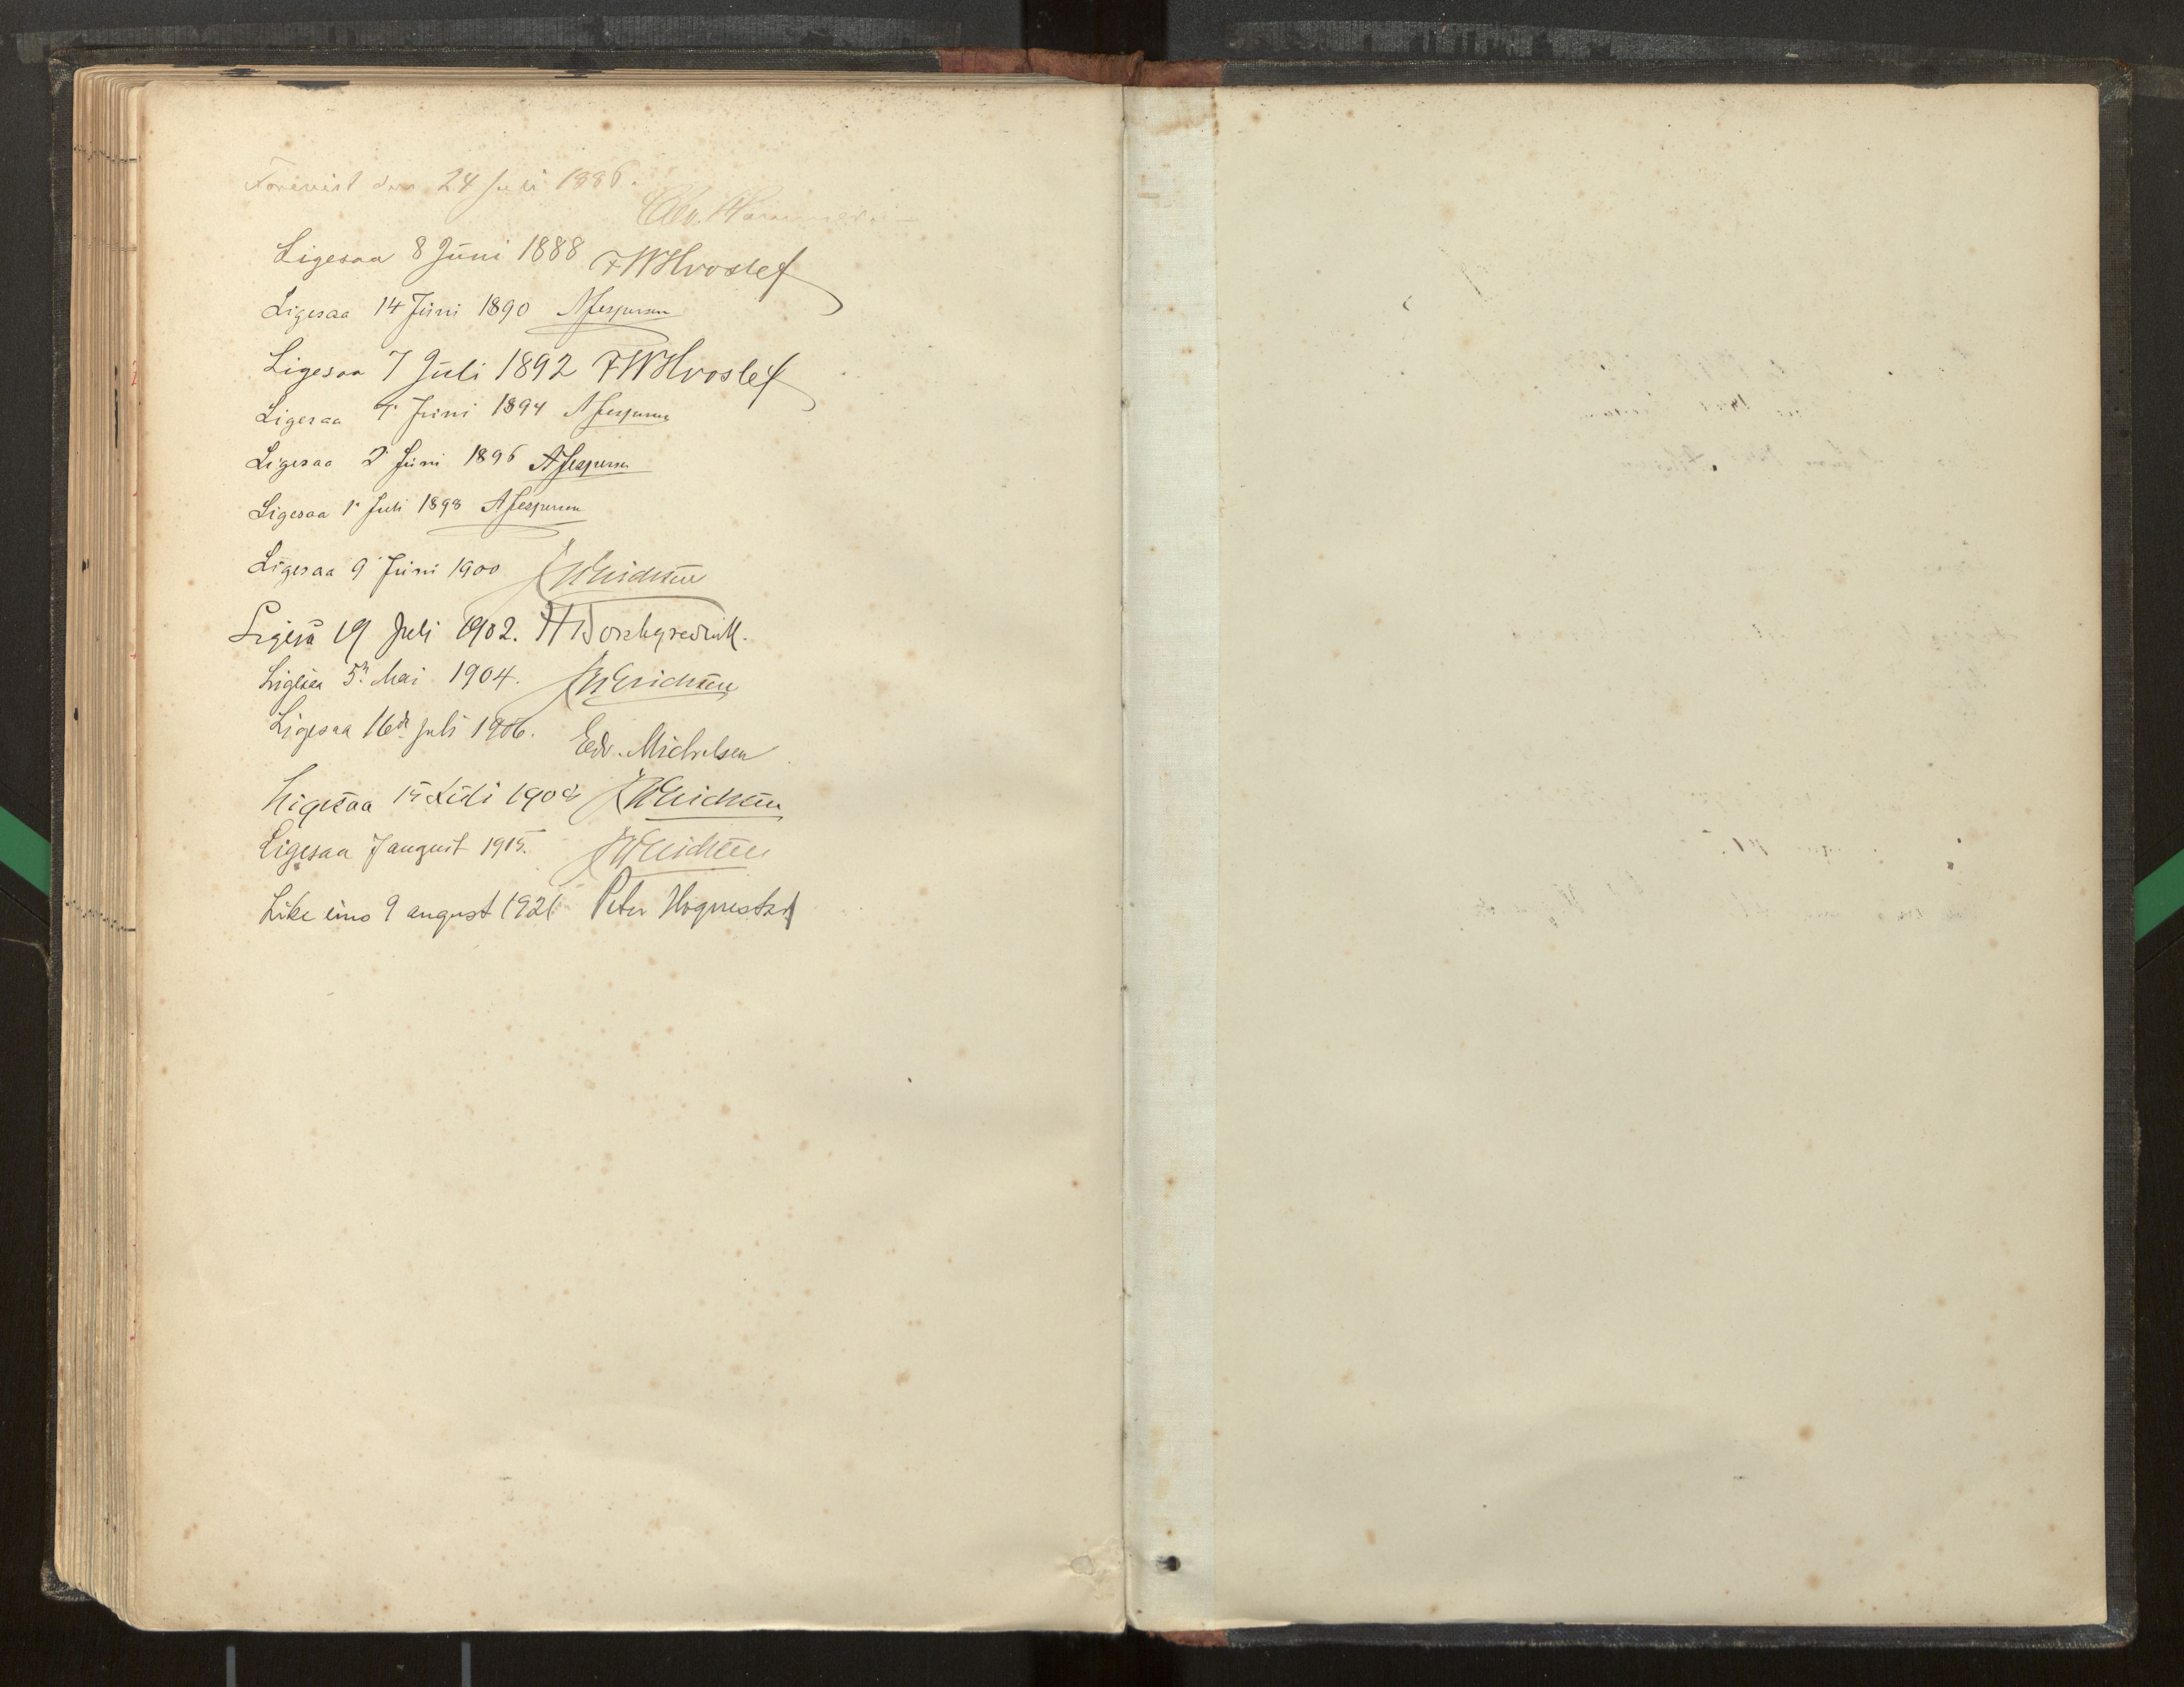 Forevist den 24 Juli 1886.
Ligesaa 8 Juni 1888 FWHvoslef
Ligesaa 14 Juni 1890 AJespersen
Ligesaa 7 Juli 1892 FWHvoslef
Ligesaa 4' Juni 1894 AJespersen
Ligesaa 2' Juni 1896 AJespersen
Ligesaa 1' Juli 1898 AJespersen
Ligesaa 9 Juni 1900 Erichsen
Ligeså 19 Juli 1902. H Borchgrevink.
Ligesaa 5te Mai 1904. Erichsen
Ligesaa 16de juli 1906. Edv. Michelsen
Ligesaa 15 Juli 1908 Erichsen
Ligesaa 7 august 1915. Erichsen
Like eins 9 august 1921 Peter Hognestad